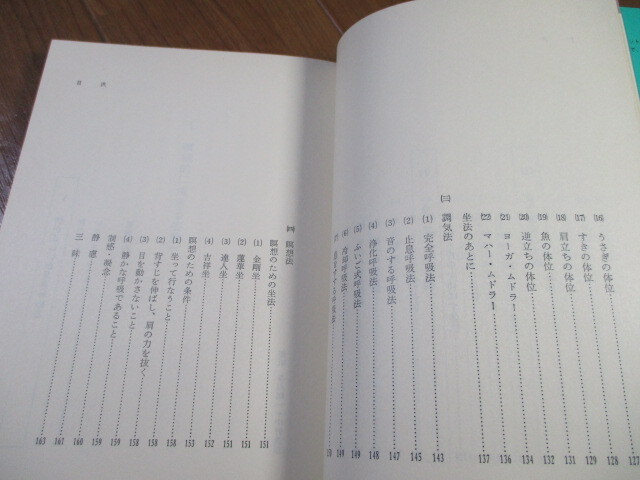 ⒃ うさぎの体位 127
⒄ すきの体位 128
⒅ 肩立ちの体位 129
⒆ 魚の体位 131
⒇ 逆立ちの体位 132
(21) ヨーガ・ムドラー 134
(22) マハー・ムドラー 136
坐法のあとに 137
㈢ 調気法
(1) 完全呼吸法 143
(2) 止息呼吸法 145
(3) 音のする呼吸法 147
(4) 浄化呼吸法 148
(5) ふいご式呼吸法 149
(6) 呼吸法 149
呼吸法
目次
㈣ 瞑想法
瞑想のための坐法 151
(1) 金剛坐 151
(2) 蓮華坐 151
(3) 達人坐 152
(4) 吉祥坐 153
瞑想のための条件 158
(1) 坐って行なうこと 158
(2) 背すじを伸ばし、肩の力を抜く 158
(3) 目を動かさないこと 159
(4) 静かな呼吸であること 159
制感・凝念 160
静慮 161
三昧 163